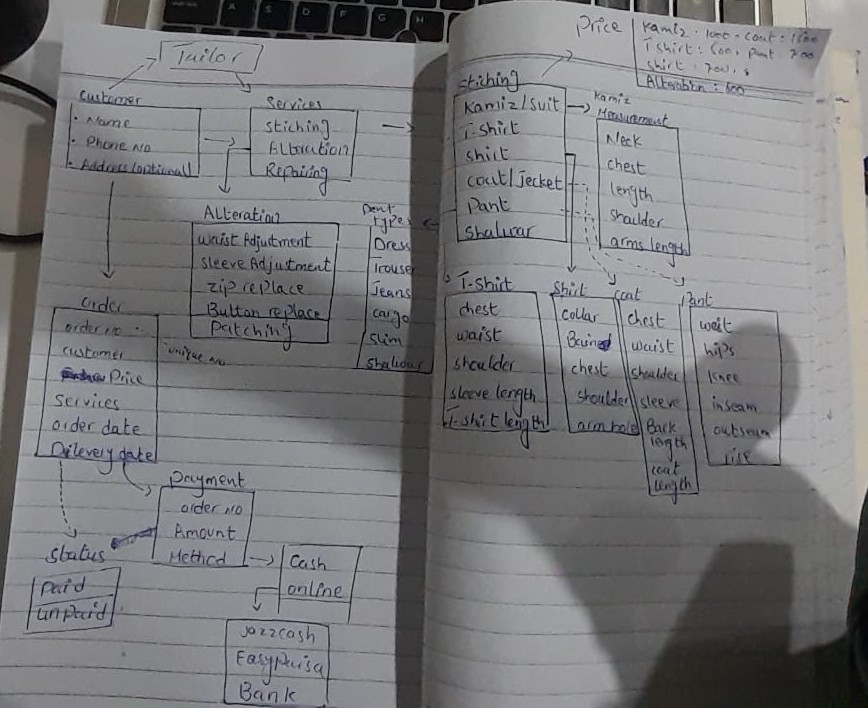 Tailor
Customer
• Name
• Phone No
• Address (optional)
Services
stiching
Alteration
Repairing
Alteration
waist Adjustment
sleeve Adjustment
zip replace
Button replace
Patching
Pent
types
Dress
Trouser
Jeans
cargo
slim
Shalwar
order
order no
unique no
customer
Price
Services
order date
Dilevery date
Payment
order no
Amount
Method
Status
paid
unpaid
Cash
online
Jazzcash
Easypaisa
Bank
Price
Kamiz : 1000
T shirt : 600, pant : 700
shirt : 700
Alteration : 600
stiching
Kamiz/suit
T-shirt
shirt
cout/jecket
Pant
Shalwar
Kamiz
Measurement
Neck
chest
length
shoulder
arms length
T-shirt
chest
waist
shoulder
sleeve length
T-shirt length
Shirt
collar
chest
shoulder
arm hole
coat
chest
waist
shoulder
sleeve
Back
length
cout
length
Pant
hips
knee
inseam
outseam
rise
A
S
D
F
G
H